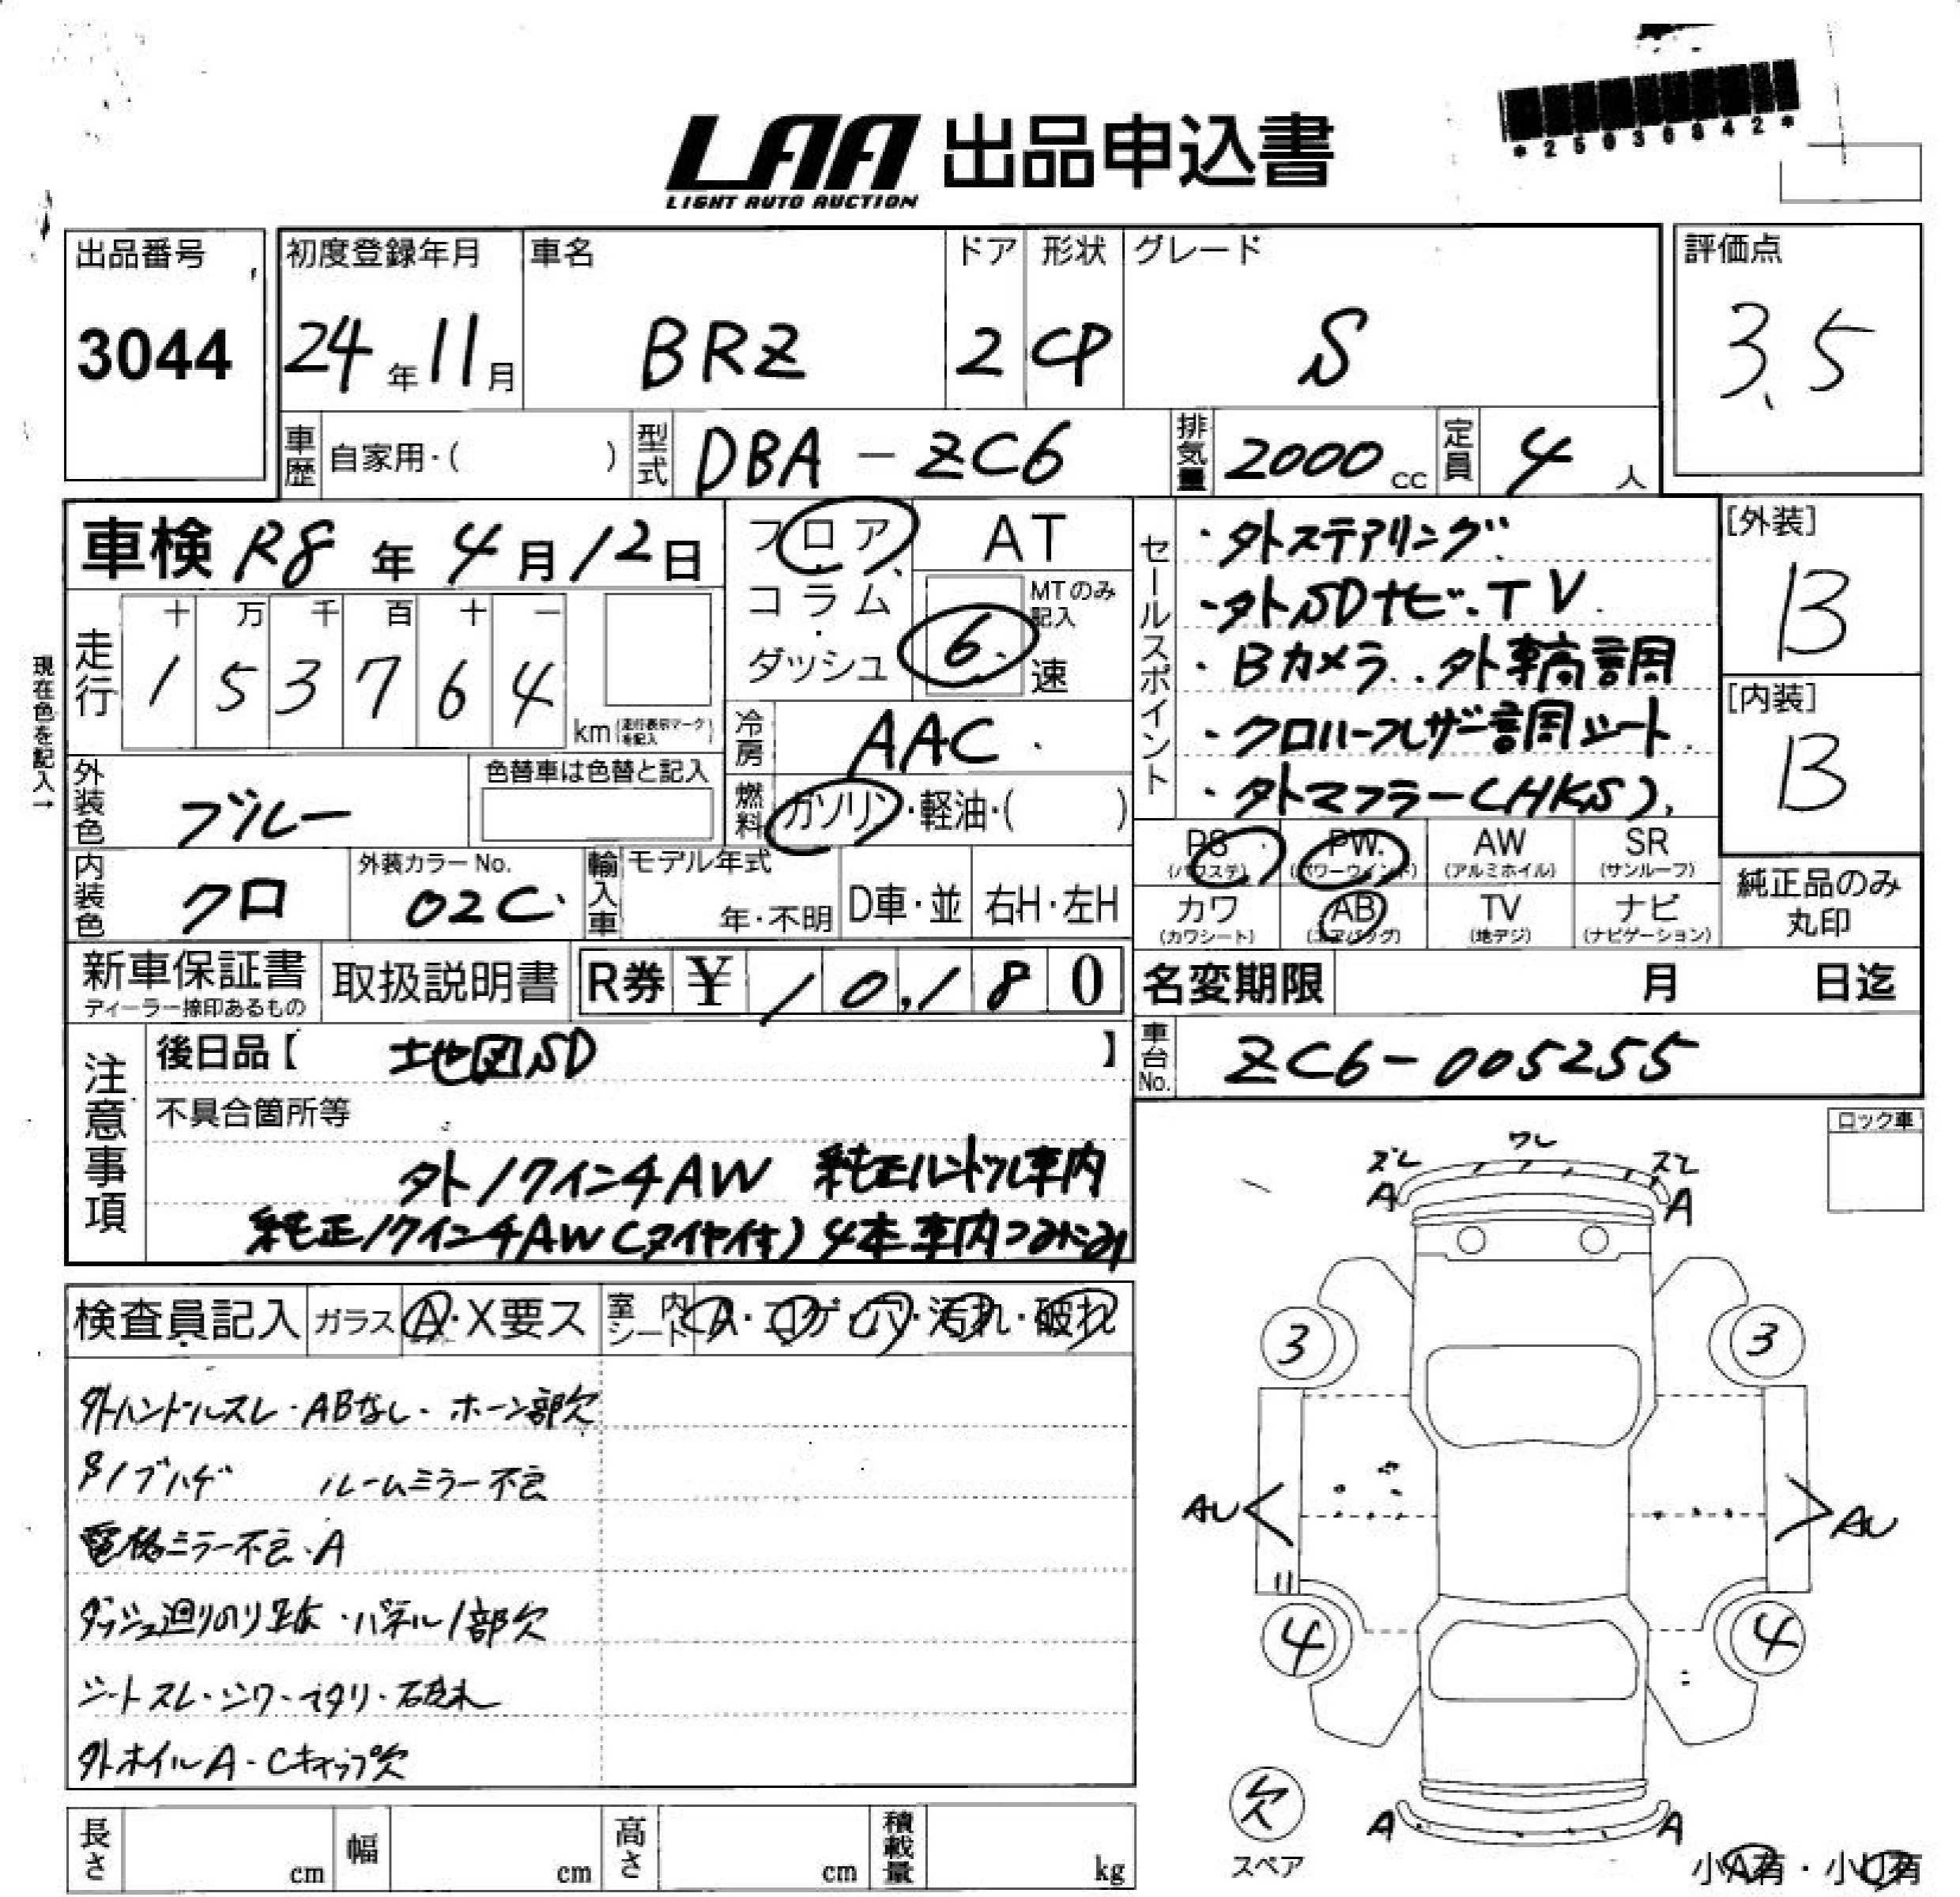 LAA 出品申込書
LIGHT AUTO AUCTION
出品番号
3044
初度登録年月
24年11月
車名
BRZ
ドア
2
形状
CP
グレード
S
評価点
3.5
車歴 自家用・( )
型式 DBA-ZC6
排気量 2000cc
定員 4人
車検 R8年4月12日
フロア・コラム・ダッシュ
AT
MTのみ記入
6速
セールスポイント
・外ステアリング
・外SDナビ・TV
・Bカメラ・外車高調
・クロハーフレザー調シート
・外マフラー(HKS)
[外装]
B
[内装]
B
現在色を記入→
走行
十 万 千 百 十 一
1 5 3 7 6 4
km (走行表示マークを記入)
冷房 AAC
燃料 ガソリン・軽油・( )
外装色 ブルー
色替車は色替と記入
内装色 クロ
外装カラーNo.
02C
輸入車
モデル年式
年・不明
D車・並
右H・左H
PS (パワステ)
PW (パワーウインド)
AW (アルミホイル)
SR (サンルーフ)
カワ (カワシート)
AB (エアバッグ)
TV (地デジ)
ナビ (ナビゲーション)
純正品のみ丸印
新車保証書
ディーラー捺印あるもの
取扱説明書
R券 ¥ 10,180
名変期限 月 日迄
注意事項
後日品【 地図SD 】
車台No. ZC6-005255
不具合箇所等
外17インチAW 純正ハンドル車内
純正17インチAW(タイヤ付)4本車内つみこみ
ロック車
検査員記入
ガラス A・X要ス
室内シート A・コゲ・穴・汚れ・破れ
外ハンドルスレ・ABなし・ホーン部欠
ルームミラー不良
電格ミラー不良・A
ダッシュ廻りのり跡・パネル1部欠
シートスレ・シワ・ヘタリ・破れ
外ホイルA・Cキャップ欠
ズレ ワレ ズレ
A A
3 3
AU AU
4 4
A A
欠
スペア
小A有・小U有
長さ cm
幅 cm
高さ cm
積載量 kg